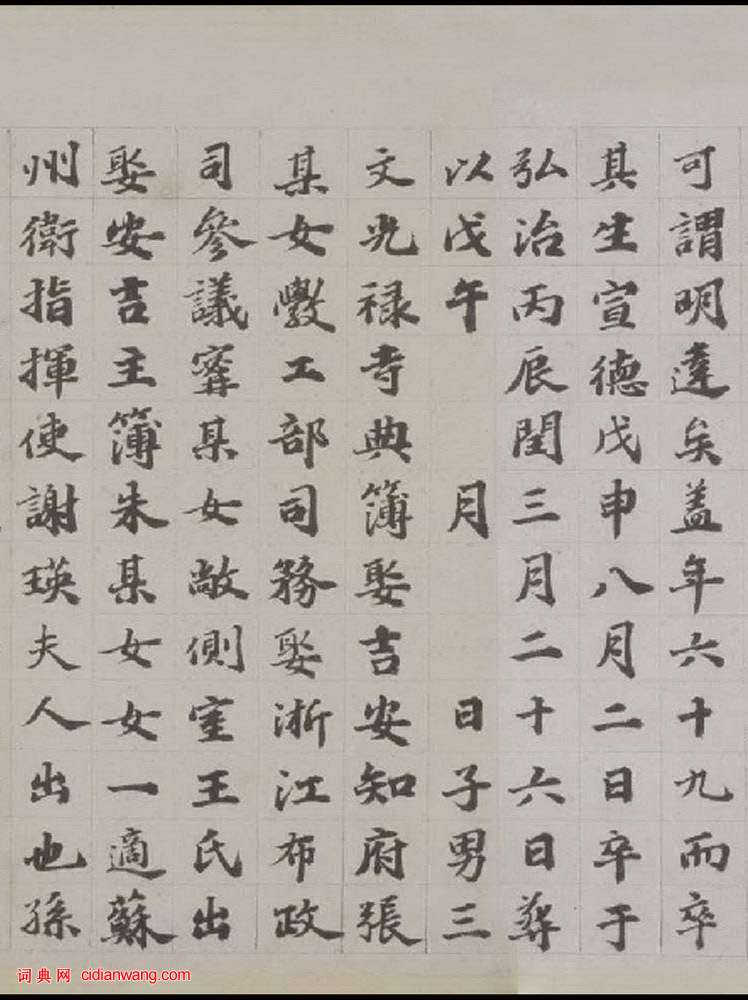 可謂明達矣蓋年六十九而卒
其生宣德戊申八月二日卒于
弘治丙辰閏三月二十六日葬
以戊午月日子男三
文光祿寺典簿娶吉安知府張
某女斆工部司務娶浙江布政
司參議寗某女敞側室王氏出
娶安吉主簿朱某女女一適蘇
州衛指揮使謝瑛夫人出也孫
词典网 cidianwang.com